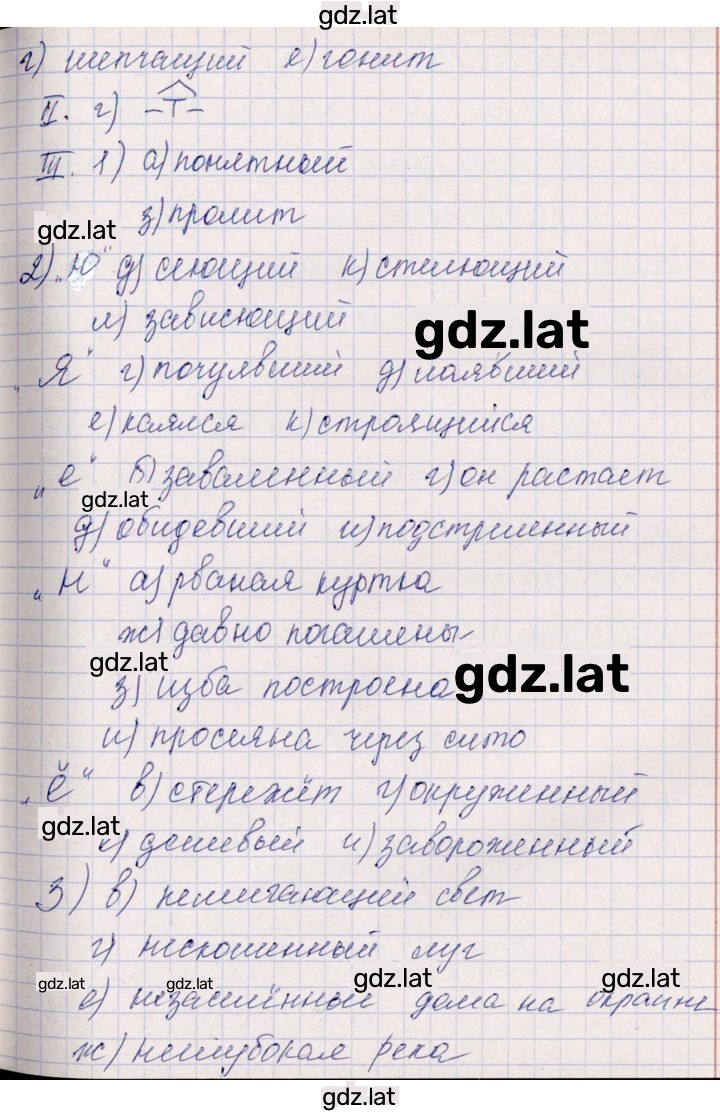 gdz.lat
г) шепчащий е) гонит
II. г) -т-
III. 1) а) понятный
gdz.lat
з) пролит
2) „Ю" д) сеющий к) стелющий
л) зависющий
gdz.lat
„Я" г) почуявший д) лаявший
е) каялся к) строящийся
„е" б) заваленный г) он растает
gdz.lat
д) обидевший и) подстреленный
„Н" а) рваная куртка
ж) давно погашены
gdz.lat
gdz.lat
з) изба построена
и) просеяна через сито
„Ё" в) стережёт г) окруженный
gdz.lat
дешевый и) завороженный
3) в) немигающий свет
г) нескошенный луг
gdz.lat gdz.lat gdz.lat gdz.lat
е) незаселённые дома на окраине
ж) неглубокая река
gdz.lat